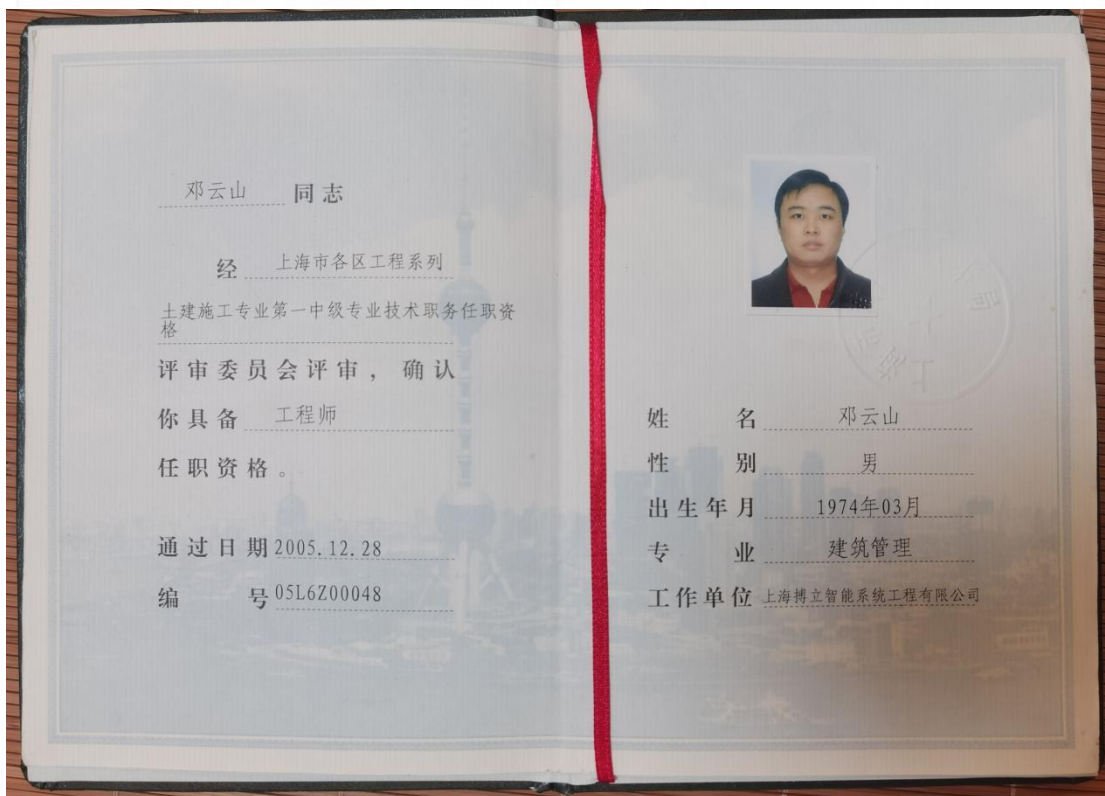 邓云山 同志
经 上海市各区工程系列
土建施工专业第一中级专业技术职务任职资
格
评审委员会评审，确认
你具备 工程师
任职资格。
通过日期 2005.12.28
编 号 05L6Z00048
姓 名 邓云山
性 别 男
出生年月 1974年03月
专 业 建筑管理
工作单位 上海搏立智能系统工程有限公司